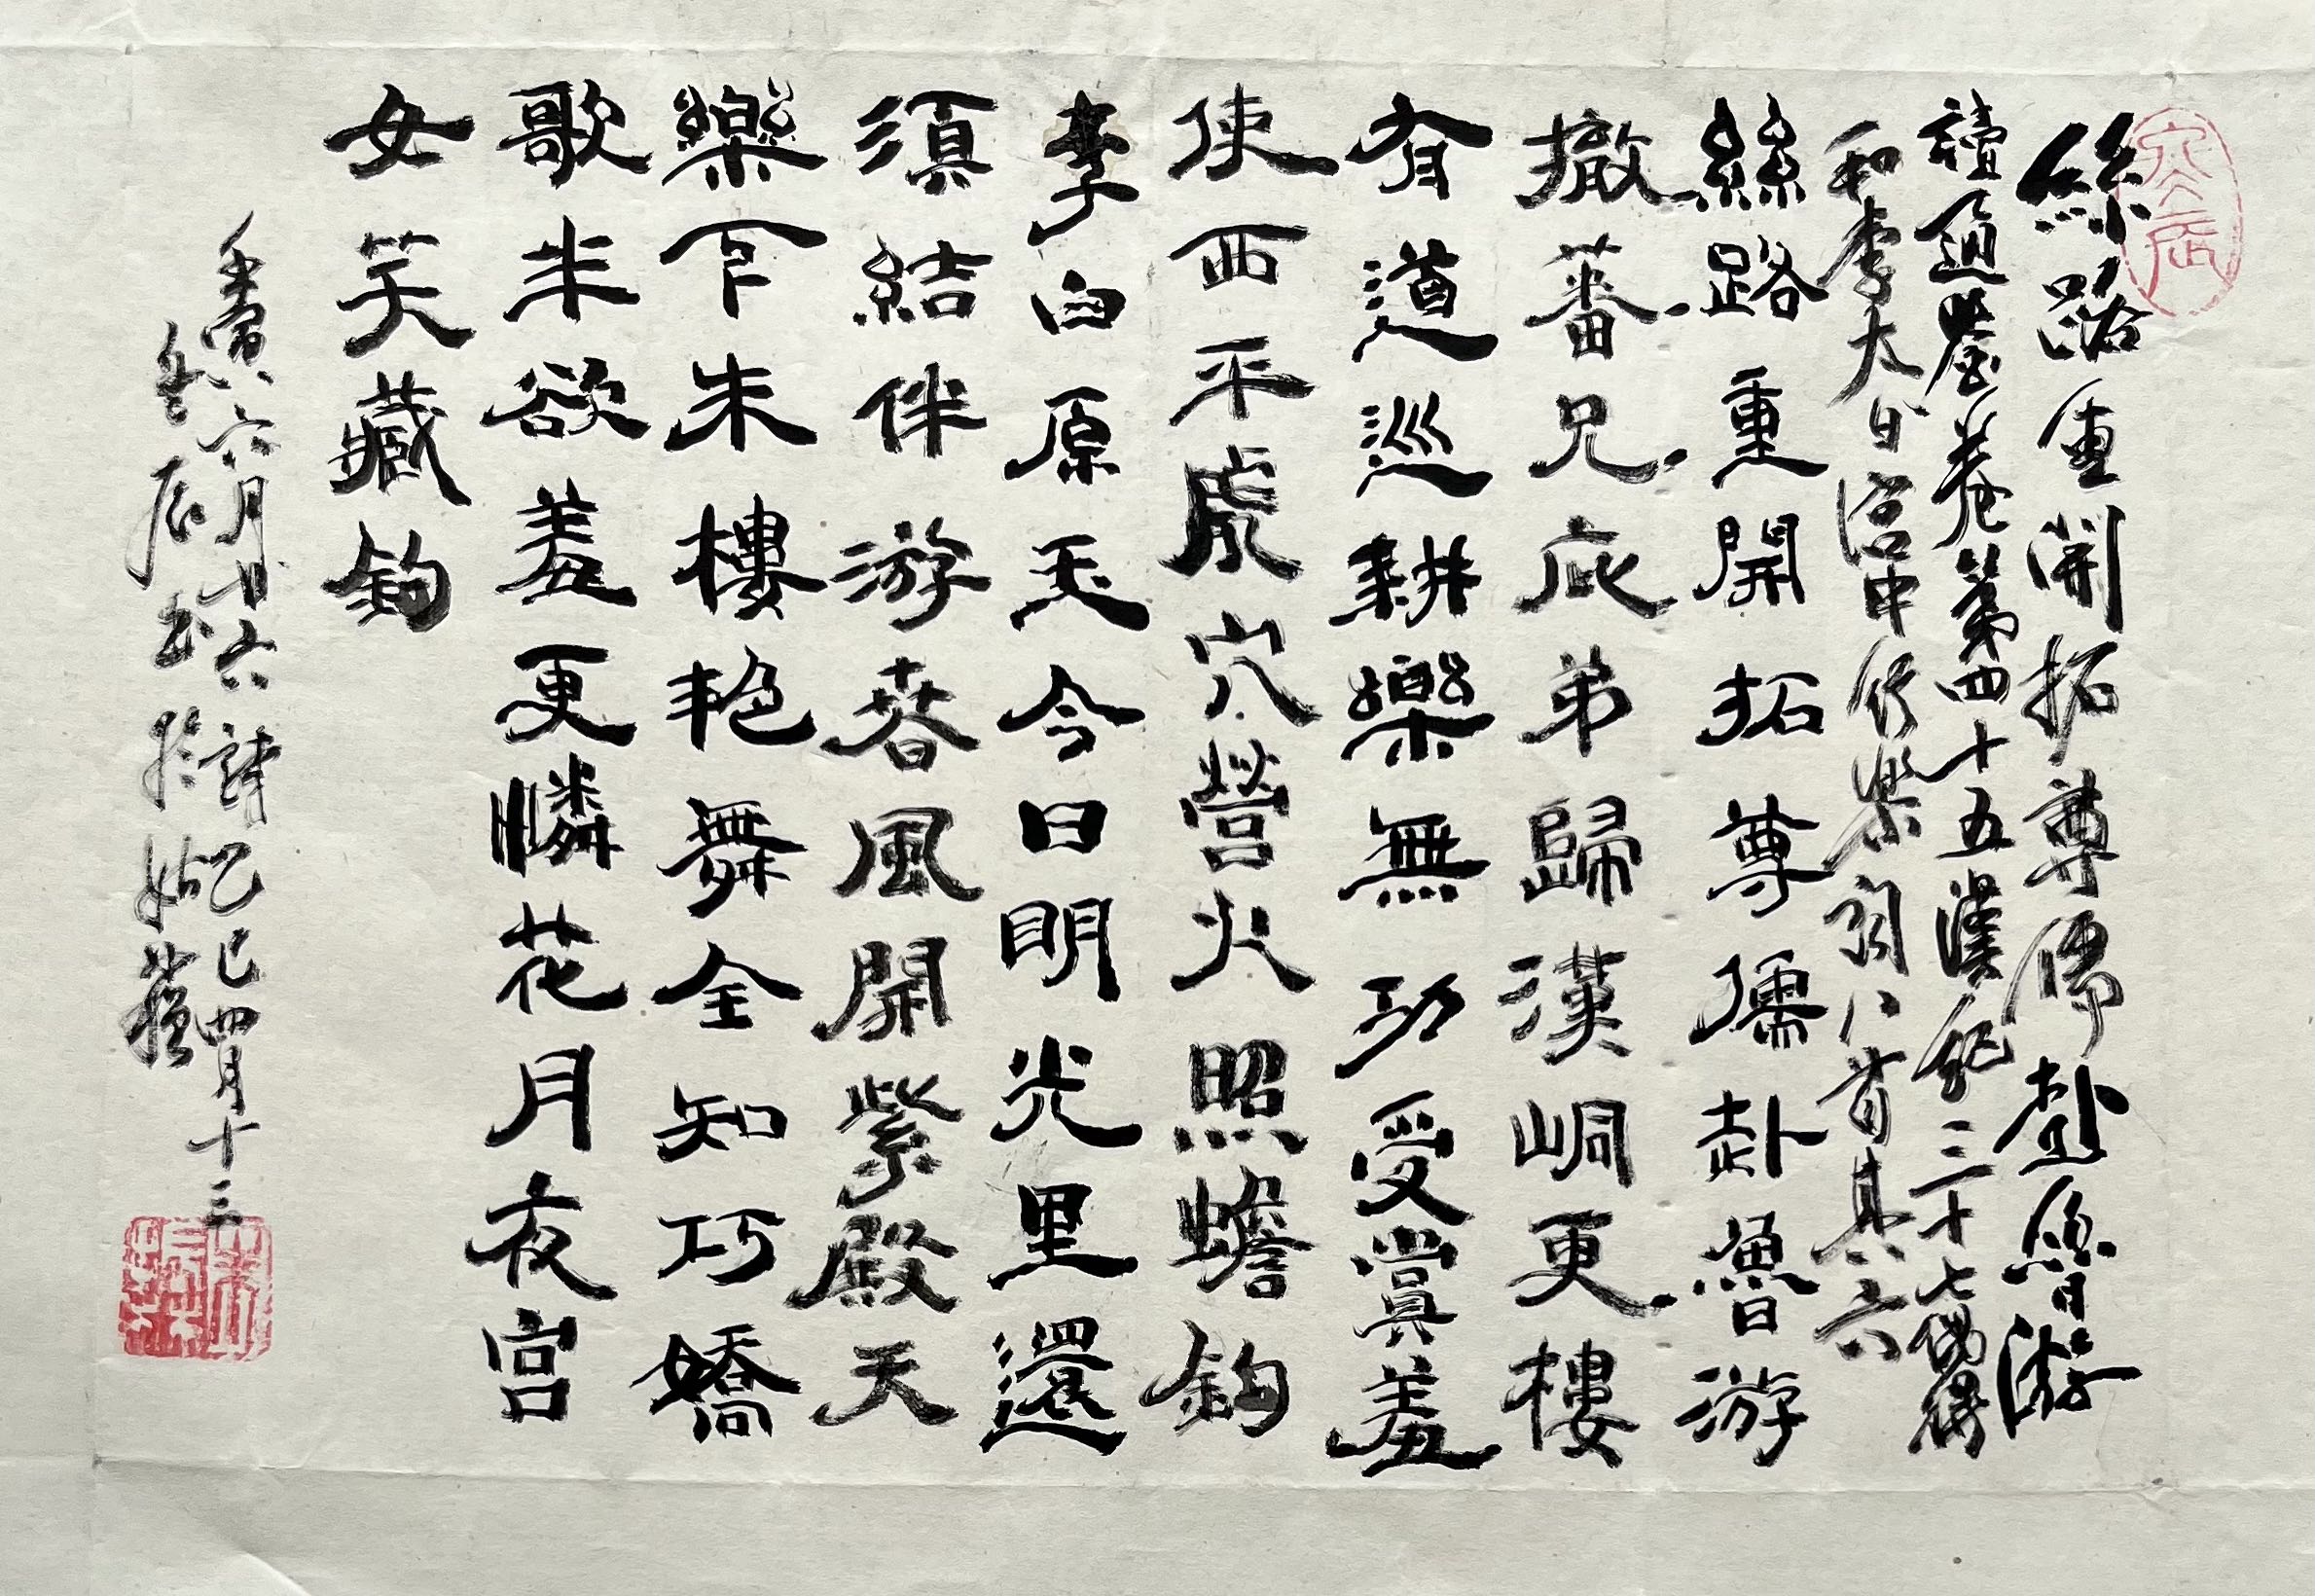 絲路重開拓尊儒赴魯游
讀通鑒卷第四十五漢紀三十七偶得
和李太白宮中行樂詞八首其六
絲路重開拓尊儒赴魯游
撤蕃兄庇弟歸漢峒更樓
有道巡耕樂無功受賞羞
使西平虎穴營火照蟾鉤
李白原玉今日明光里還
須結伴游春風開紫殿天
樂下朱樓艷舞全知巧嬌
歌半欲羞更憐花月夜宮
女笑藏鉤
壬寅六月廿六詩乙巳四月十三
無